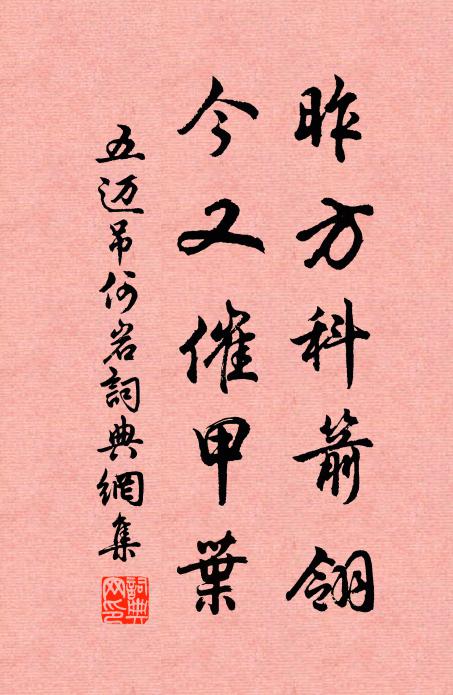 昨方科箭翎
今又催甲葉
五迈吊何岩詞典網集
詞典网印